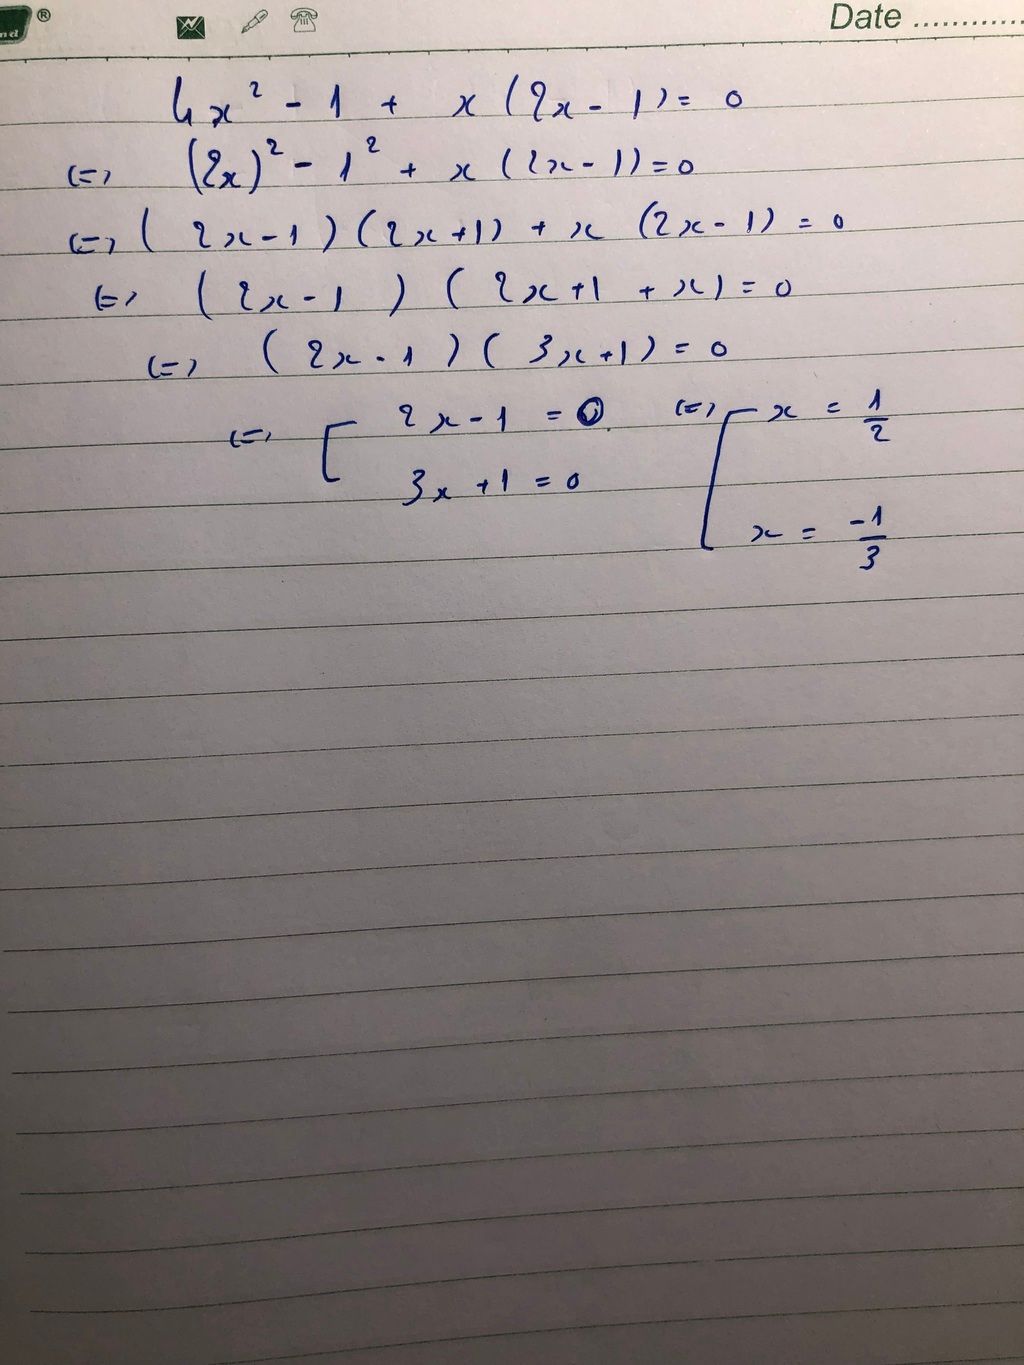 ® Date ............
4x² - 1 + x (2x - 1) = 0
(=) (2x)² - 1² + x (2x - 1) = 0
(=) ( 2x - 1 ) (2x + 1) + x (2x - 1) = 0
(=) ( 2x - 1 ) ( 2x + 1 + x) = 0
(=) ( 2x - 1 ) ( 3x + 1) = 0
(=) [ 2x - 1 = 0 (=) [ x = 1/2
3x + 1 = 0 x = -1/3